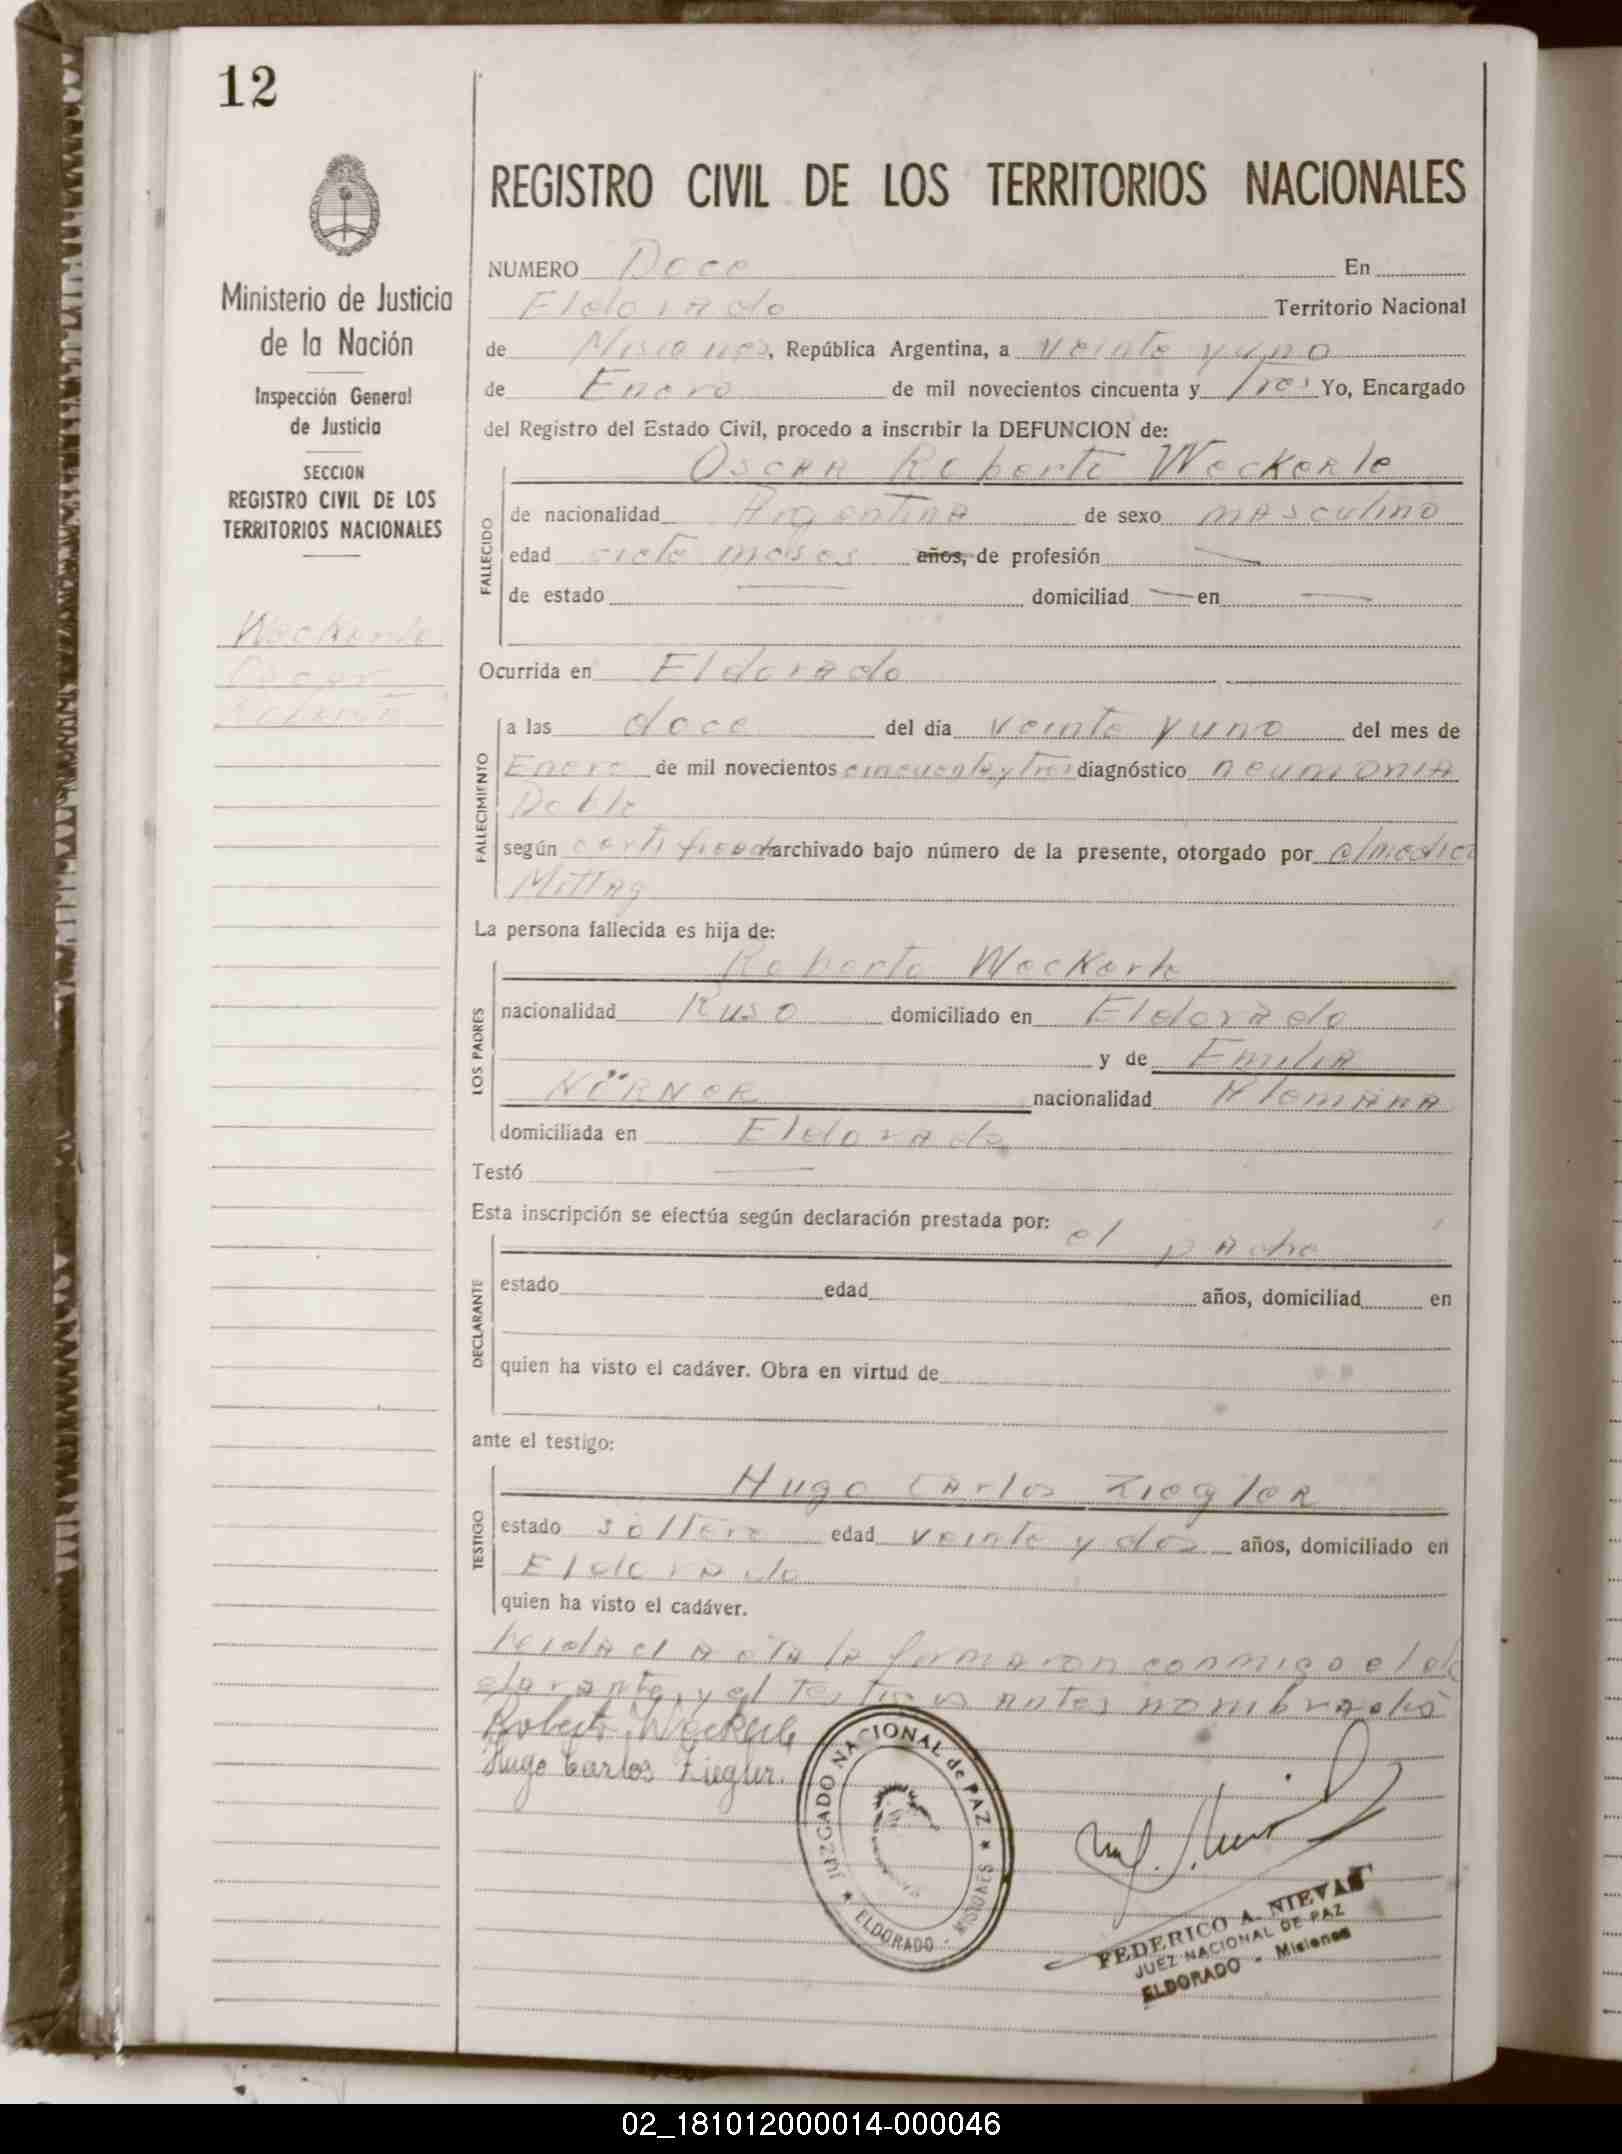 12
Ministerio de Justicia
de la Nación
Inspección General
de Justicia
SECCION
REGISTRO CIVIL DE LOS
TERRITORIOS NACIONALES
Weckerle
Oscar
Roberto
REGISTRO CIVIL DE LOS TERRITORIOS NACIONALES
NUMERO Doce En
Eldorado Territorio Nacional
de Misiones, República Argentina, a veinte y uno
de Enero de mil novecientos cincuenta y Tres Yo, Encargado
del Registro del Estado Civil, procedo a inscribir la DEFUNCION de:
Oscar Roberto Weckerle
FALLECIDO
de nacionalidad Argentina de sexo masculino
edad siete meses años, de profesión —
de estado — domiciliad — en —
Ocurrida en Eldorado
FALLECIMIENTO
a las doce del día veinte y uno del mes de
Enero de mil novecientos cincuenta y Tres diagnóstico neumonia
Doble
según certificado archivado bajo número de la presente, otorgado por el medico
Mittag
La persona fallecida es hija de:
LOS PADRES
Roberto Weckerle
nacionalidad Ruso domiciliado en Eldorado
y de Emilia
NÖRNER nacionalidad Alemana
domiciliada en Eldorado
Testó —
Esta inscripción se efectúa según declaración prestada por: el padre
DECLARANTE
estado edad años, domiciliad en
quien ha visto el cadáver. Obra en virtud de
ante el testigo:
TESTIGO
Hugo Carlos Ziegler
estado soltero edad veinte y dos años, domiciliado en
Eldorado
quien ha visto el cadáver.
Leida el acta la firmaron conmigo el de
clarante y el testigo antes nombrados
Robert Weckerle
Hugo Carlos Ziegler.
JUZGADO NACIONAL de PAZ ★ MISIONES - ELDORADO ★
FEDERICO A. NIEVAS
JUEZ NACIONAL DE PAZ
ELDORADO - Misiones
02_181012000014-000046